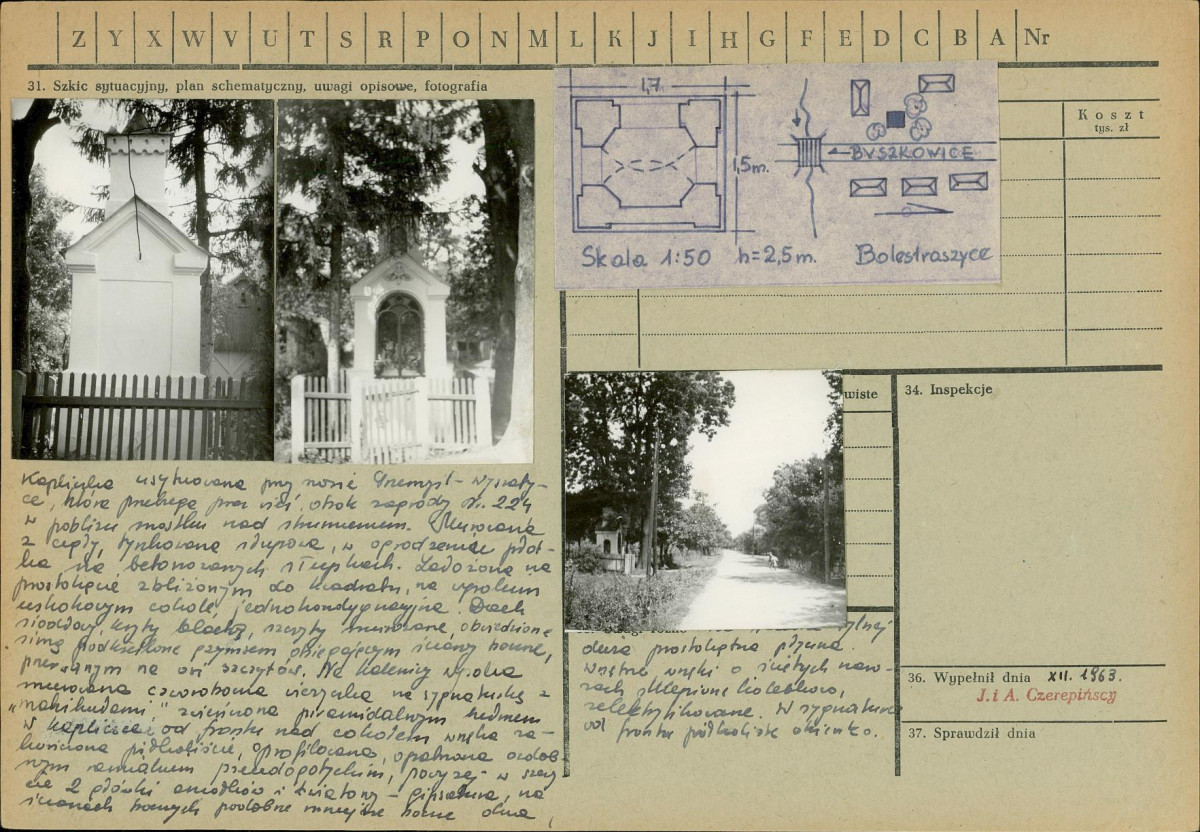 Z Y X W V U T S R P O N M L K J I H G F E D C B A Nr
31. Szkic sytuacyjny, plan schematyczny, uwagi opisowe, fotografia
1,7
1,5m.
BUSZKOWICE
Skala 1:50 h=2,5m. Bolestraszyce
Koszt
tys. zł
wiste
34. Inspekcje
Kapliczka usytuowana przy szosie Przemyśl - Wyszaty-
ce, która przebiega przez wieś, obok zagrody nr. 224
w pobliżu mostku nad strumieniem. Murowana
z cegły, tynkowana słupowa, w ogrodzeniu płot-
ka na betonowych słupkach. Założona na
prostokącie zbliżonym do kwadratu, na wysokim
uskokowym cokole, jednokondygnacyjna. Dach
siodłowy kryty blachą, szczyty murowane, obwiedzione
simą podkreślone gzymsem obiegającym ściany boczne,
przerwanym na osi szczytów. Na kalenicy wysoka
murowana czworoboczna wieżyczka na sygnaturkę z
"machikułami", zwieńczona piramidalnym hełmem
W kapliczce od frontu nad cokołem wnęka za-
kończona półkoliście, profilowana, opatrzona ozdob
nym pseudogotyckim, powyżej w szczy
cie 2 główki aniołków i światony - gipsatura, na
ścianach bocznych podobne mniejsze boczne okna
tylnej
duża prostokątna płycina.
wnętrze wnęki o ściętych naro-
żach sklepione kolebkowo,
zelektryfikowane. W sygnaturce
od frontu półkoliste okienko.
36. Wypełnił dnia XII. 1963.
J. i A. Czerepińscy
37. Sprawdził dnia